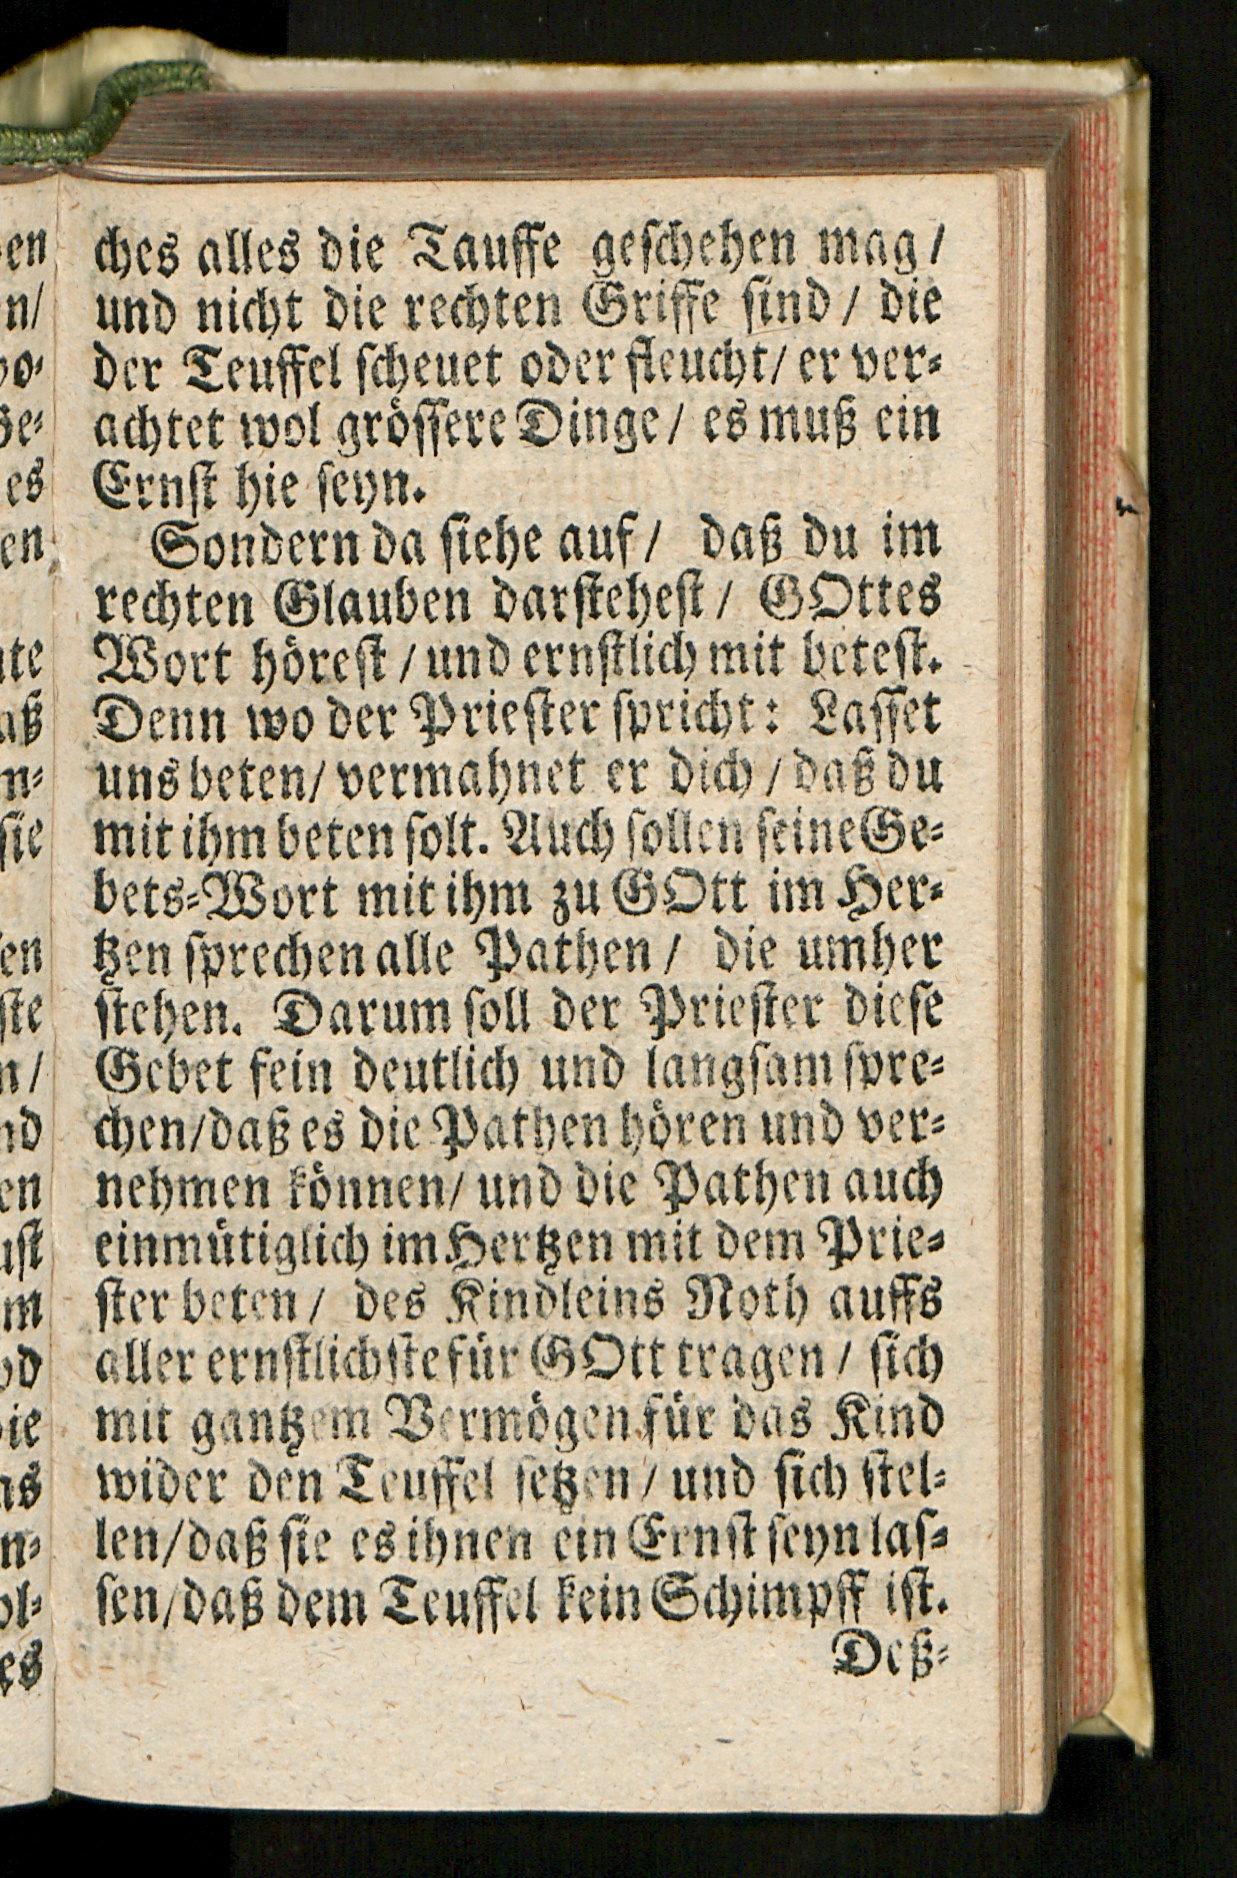 ches alles die Tauffe geschehen mag /
und nicht die rechten Griffe sind / die
der Teuffel scheuet oder fleucht / er ver-
achtet wol grössere Dinge / es muß ein
Ernst hie seyn.
Sondern da siehe auf / daß du im
rechten Glauben darstehest / GOttes
Wort hörest / und ernstlich mit betest.
Denn wo der Priester spricht: Lasset
uns beten / vermahnet er dich / daß du
mit ihm beten solt. Auch sollen seine Ge-
bets-Wort mit ihm zu GOtt im Her-
tzen sprechen alle Pathen / die umher
stehen. Darum soll der Priester diese
Gebet fein deutlich und langsam spre-
chen / daß es die Pathen hören und ver-
nehmen können / und die Pathen auch
einmütiglich im Hertzen mit dem Prie-
ster beten / des Kindleins Noth auffs
aller ernstlichste für GOtt tragen / sich
mit gantzem Vermögen für das Kind
wider den Teuffel setzen / und sich stel-
len / daß sie es ihnen ein Ernst seyn las-
sen / daß dem Teuffel kein Schimpff ist.
Deß-